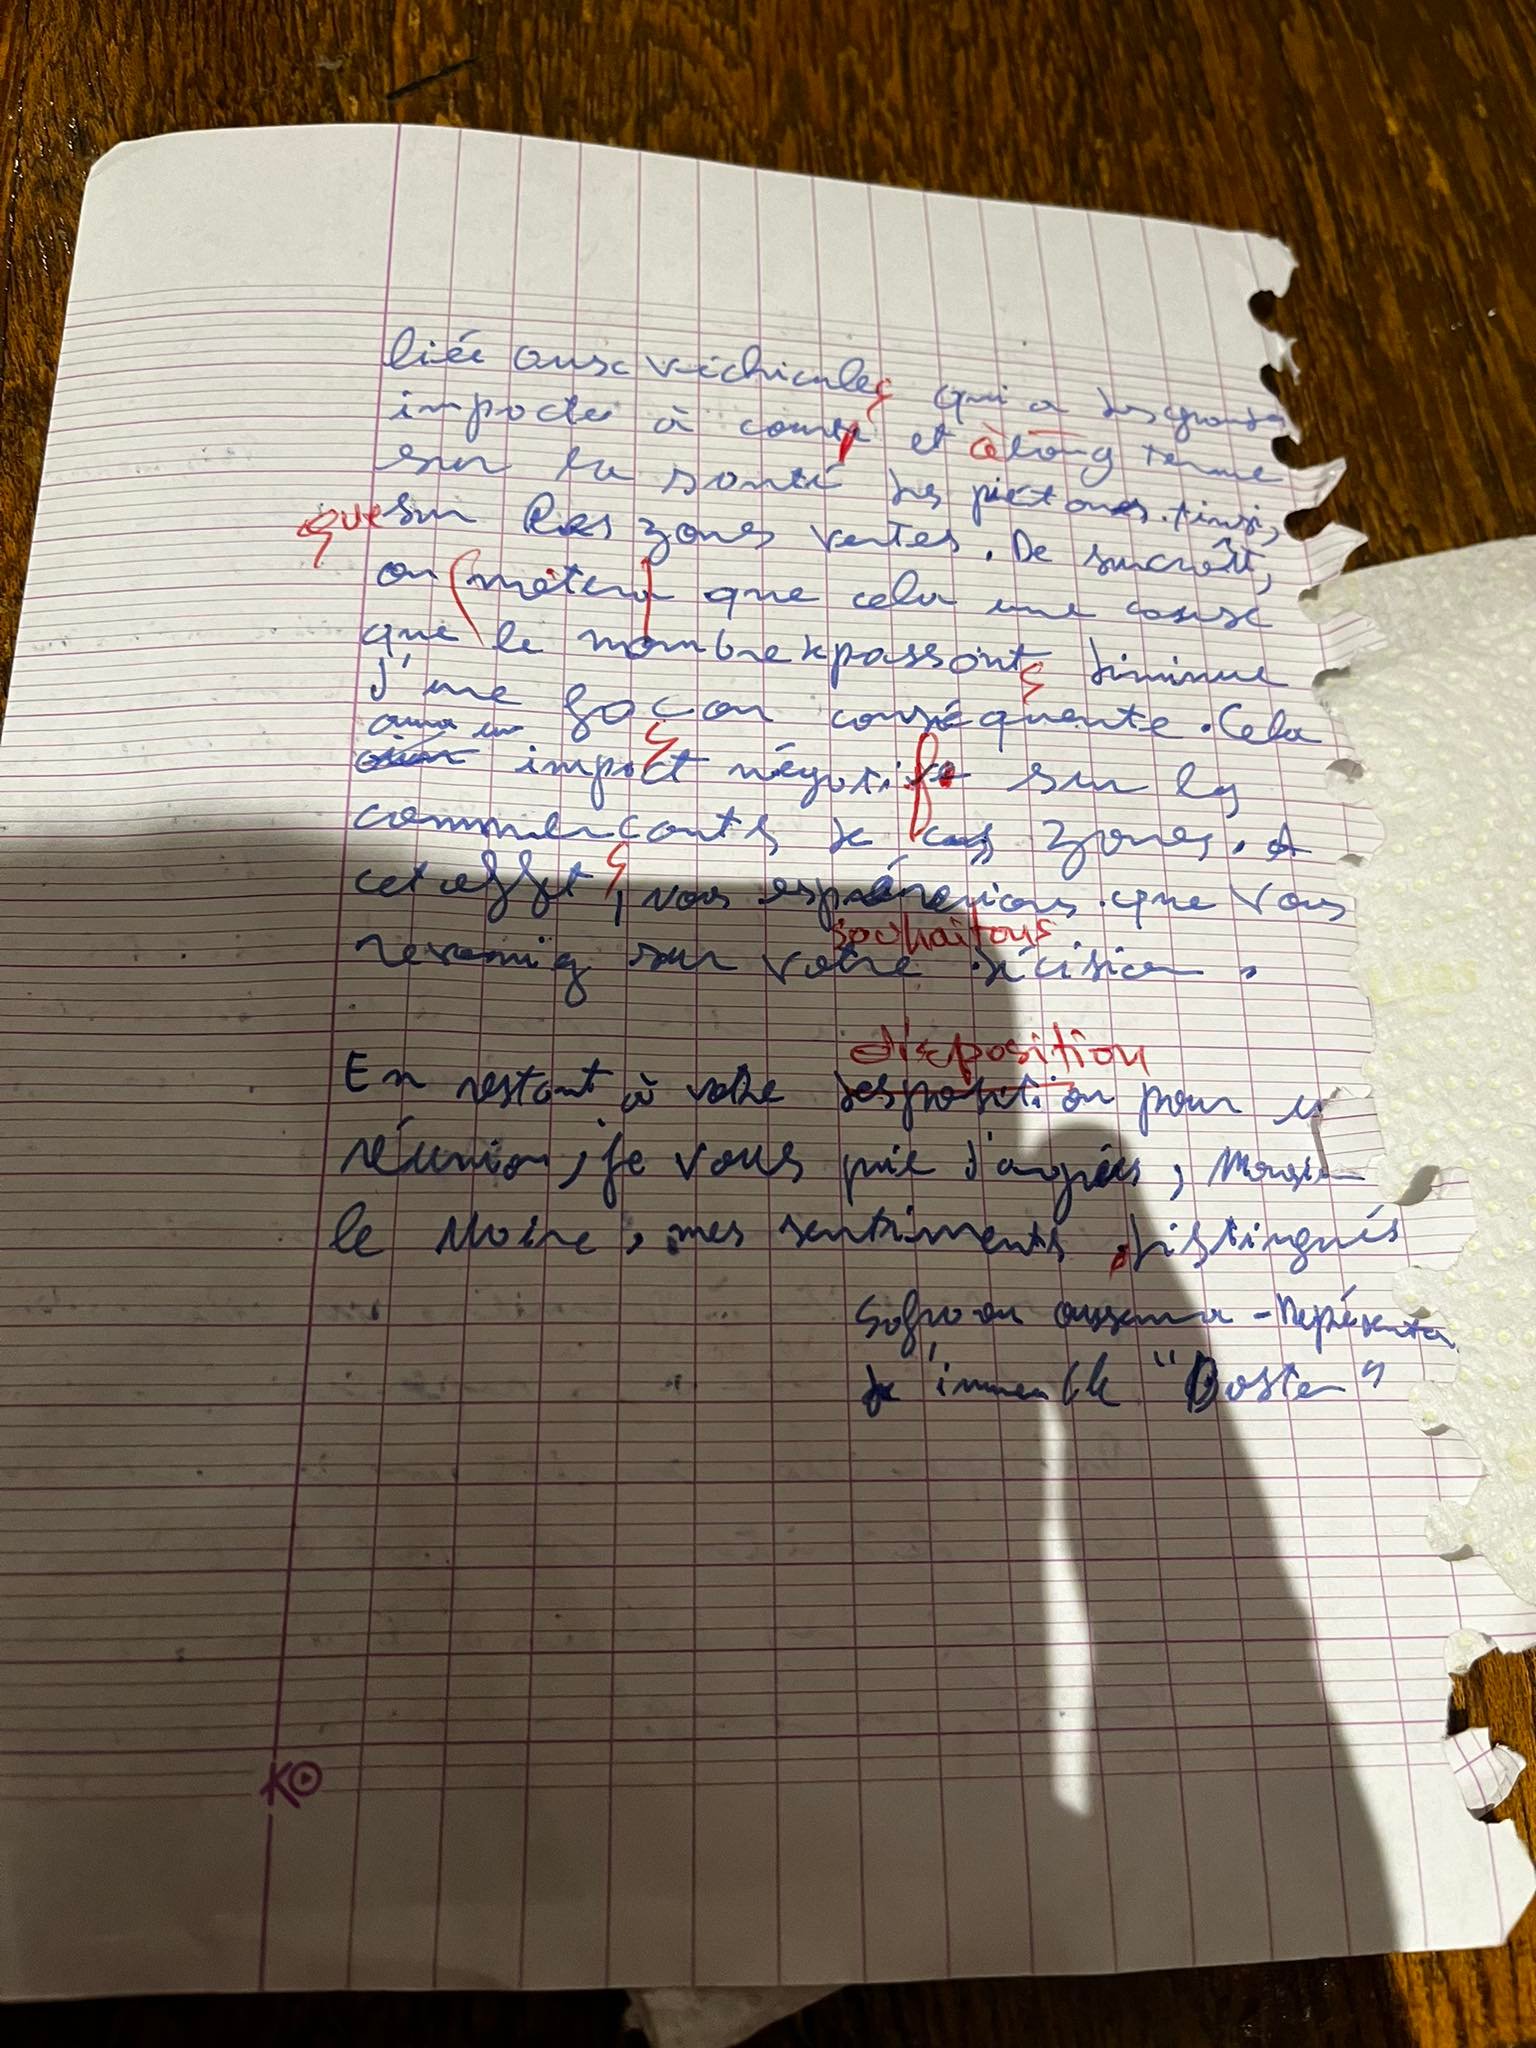 liée aux véhicules qui a des grands
impacte à court et à long terme
sur la santé des piétons. Ainsi,
que sur les zones vertes. De surcroît,
on notera que cela une cause
que le nombre passants diminue
d'une façon conséquente. Cela
aura un impact négatif sur les
commerçants de ces zones. A
cet effet, nous espérerions que vous
souhaitons
reveniez sur votre décision.
disposition
En restant à votre desposition pour
réunion, je vous prie d'agréer,
le Maire, mes sentiments distingués
de l'immeuble "Boston"
KO